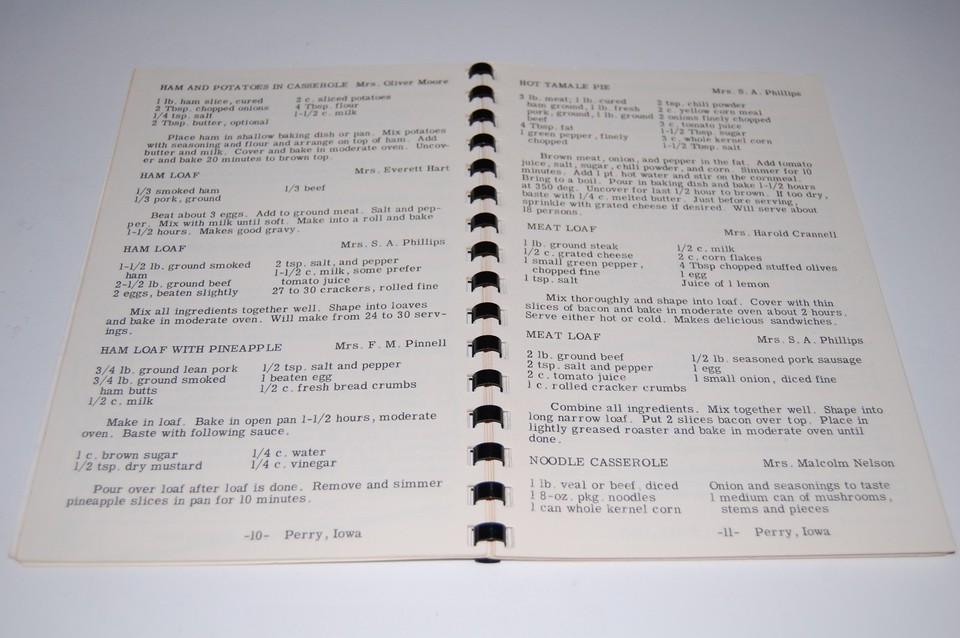 HAM AND POTATOES IN CASSEROLE Mrs. Oliver Moore
1 lb. ham slice, cured 2 c. sliced potatoes
2 Tbsp. chopped onions 4 Tbsp. flour
1/4 tsp. salt 1-1/2 c. milk
2 Tbsp. butter, optional
Place ham in shallow baking dish or pan. Mix potatoes
with seasoning and flour and arrange on top of ham. Add
butter and milk. Cover and bake in moderate oven. Uncov-
er and bake 20 minutes to brown top.
HAM LOAF Mrs. Everett Hart
1/3 smoked ham 1/3 beef
1/3 pork, ground
Beat about 3 eggs. Add to ground meat. Salt and pep-
per. Mix with milk until soft. Make into a roll and bake
1-1/2 hours. Makes good gravy.
HAM LOAF Mrs. S. A. Phillips
1-1/2 lb. ground smoked 2 tsp. salt, and pepper
ham 1-1/2 c. milk, some prefer
2-1/2 lb. ground beef tomato juice
2 eggs, beaten slightly 27 to 30 crackers, rolled fine
Mix all ingredients together well. Shape into loaves
and bake in moderate oven. Will make from 24 to 30 serv-
ings.
HAM LOAF WITH PINEAPPLE Mrs. F. M. Pinnell
3/4 lb. ground lean pork 1/2 tsp. salt and pepper
3/4 lb. ground smoked 1 beaten egg
ham butts 1/2 c. fresh bread crumbs
1/2 c. milk
Make in loaf. Bake in open pan 1-1/2 hours, moderate
oven. Baste with following sauce.
1 c. brown sugar 1/4 c. water
1/2 tsp. dry mustard 1/4 c. vinegar
Pour over loaf after loaf is done. Remove and simmer
pineapple slices in pan for 10 minutes.
-10- Perry, Iowa
HOT TAMALE PIE Mrs. S. A. Phillips
3 lb. meat; 1 lb. cured 2 tsp. chili powder
ham ground, 1 lb. fresh 2 c. yellow corn meal
pork, ground, 1 lb. ground 2 onions finely chopped
beef 3 c. tomato juice
4 Tbsp. fat 1-1/2 Tbsp. sugar
1 green pepper, finely 3 c. whole kernel corn
chopped 1-1/2 Tbsp. salt
Brown meat, onion, and pepper in the fat. Add tomato
juice, salt, sugar, chili powder, and corn. Simmer for 10
minutes. Add 1 pt. hot water and stir on the cornmeal.
Bring to a boil. Pour in baking dish and bake 1-1/2 hours
at 350 deg. Uncover for last 1/2 hour to brown. If too dry,
baste with 1/4 c. melted butter. Just before serving,
sprinkle with grated cheese if desired. Will serve about
18 persons.
MEAT LOAF Mrs. Harold Crannell
1 lb. ground steak 1/2 c. milk
1/2 c. grated cheese 2 c. corn flakes
1 small green pepper, 4 Tbsp chopped stuffed olives
chopped fine 1 egg
1 tsp. salt Juice of 1 lemon
Mix thoroughly and shape into loaf. Cover with thin
slices of bacon and bake in moderate oven about 2 hours.
Serve either hot or cold. Makes delicious sandwiches.
MEAT LOAF Mrs. S. A. Phillips
2 lb. ground beef 1/2 lb. seasoned pork sausage
2 tsp. salt and pepper 1 egg
2 c. tomato juice 1 small onion, diced fine
1 c. rolled cracker crumbs
Combine all ingredients. Mix together well. Shape into
long narrow loaf. Put 2 slices bacon over top. Place in
lightly greased roaster and bake in moderate oven until
done.
NOODLE CASSEROLE Mrs. Malcolm Nelson
1 lb. veal or beef, diced Onion and seasonings to taste
1 8-oz. pkg. noodles 1 medium can of mushrooms,
1 can whole kernel corn stems and pieces
-11- Perry, Iowa